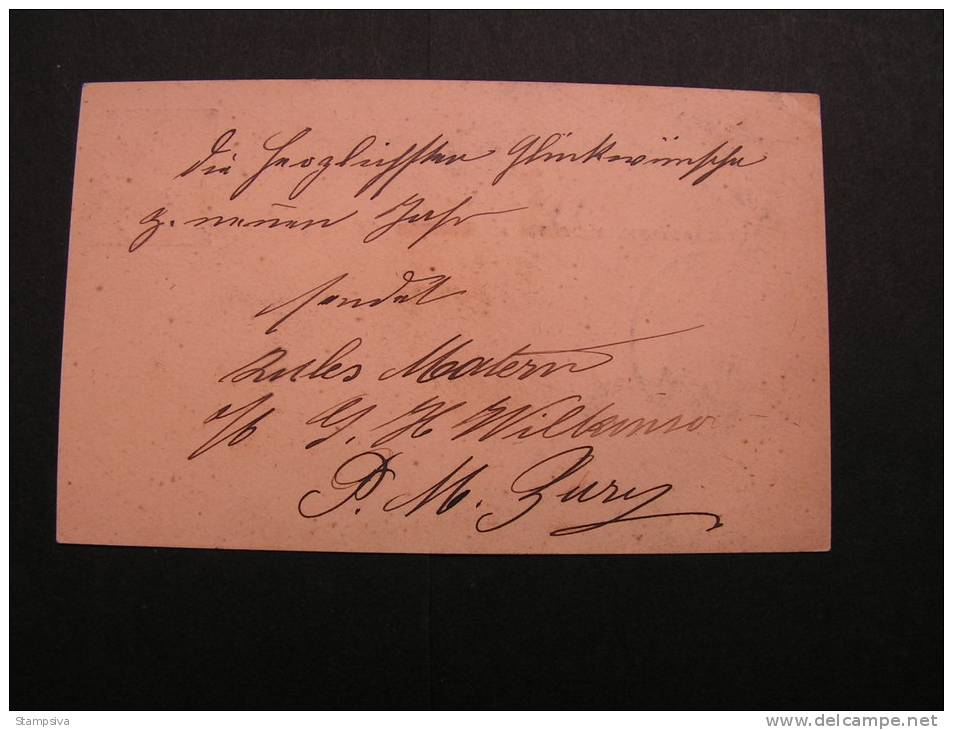 Die herzlichsten Glückwünsche
z. neuen Jahr
sendet
Matern
G. H Wilkinson
P. M. Burg
Stampsiva
www.delcampe.net